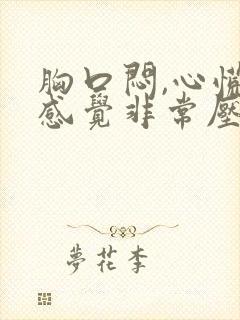 胸口悶,心慌
感覺非常壓
夢花李